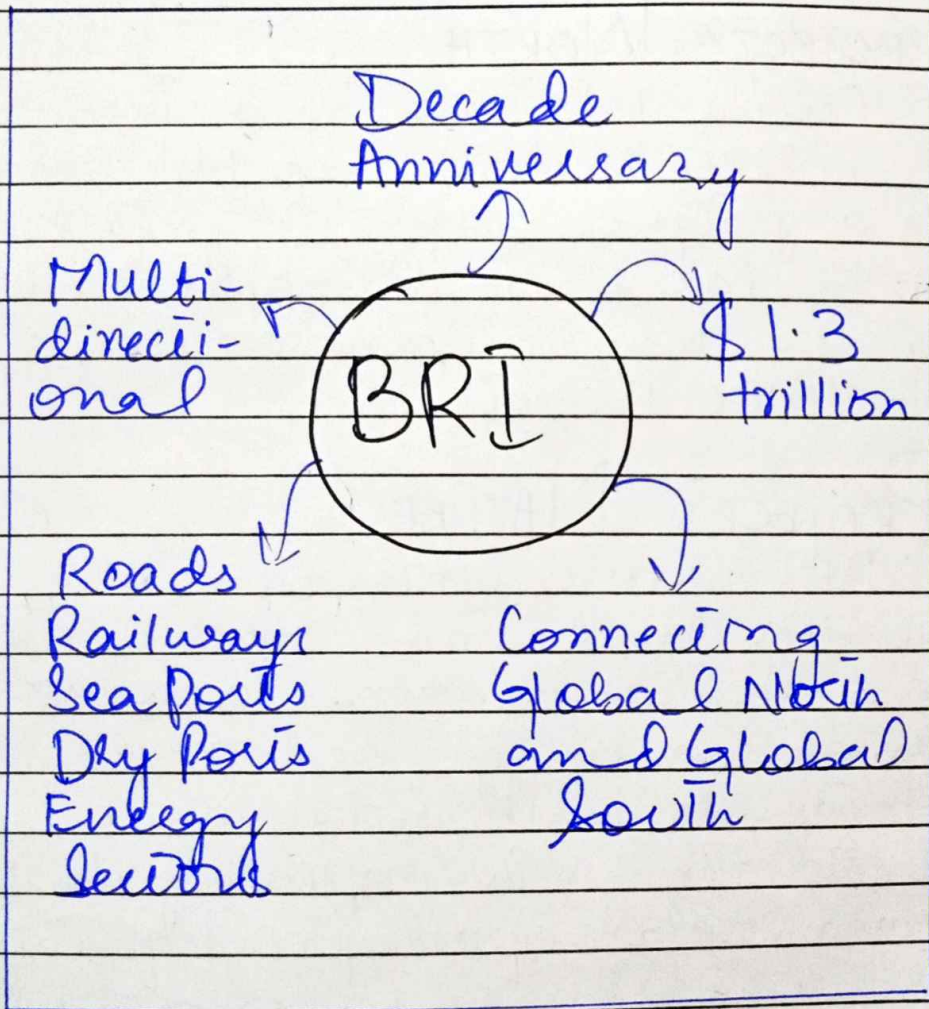 Decade
Anniversary
Multi-
directi-
onal
BRI
$1.3
trillion
Roads
Railways
Sea Ports
Dry Ports
Energy
Sectors
Connecting
Global North
and Global
South